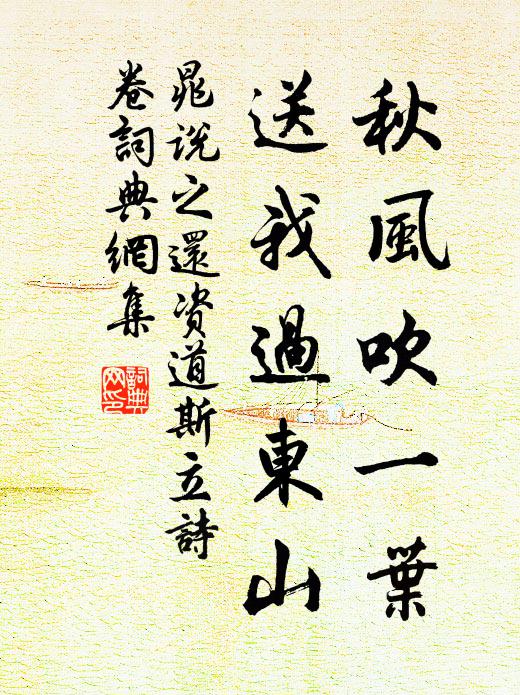 秋風吹一葉
送我過東山
晁說之還資道斯立詩
卷詞典網集
詞典
网印